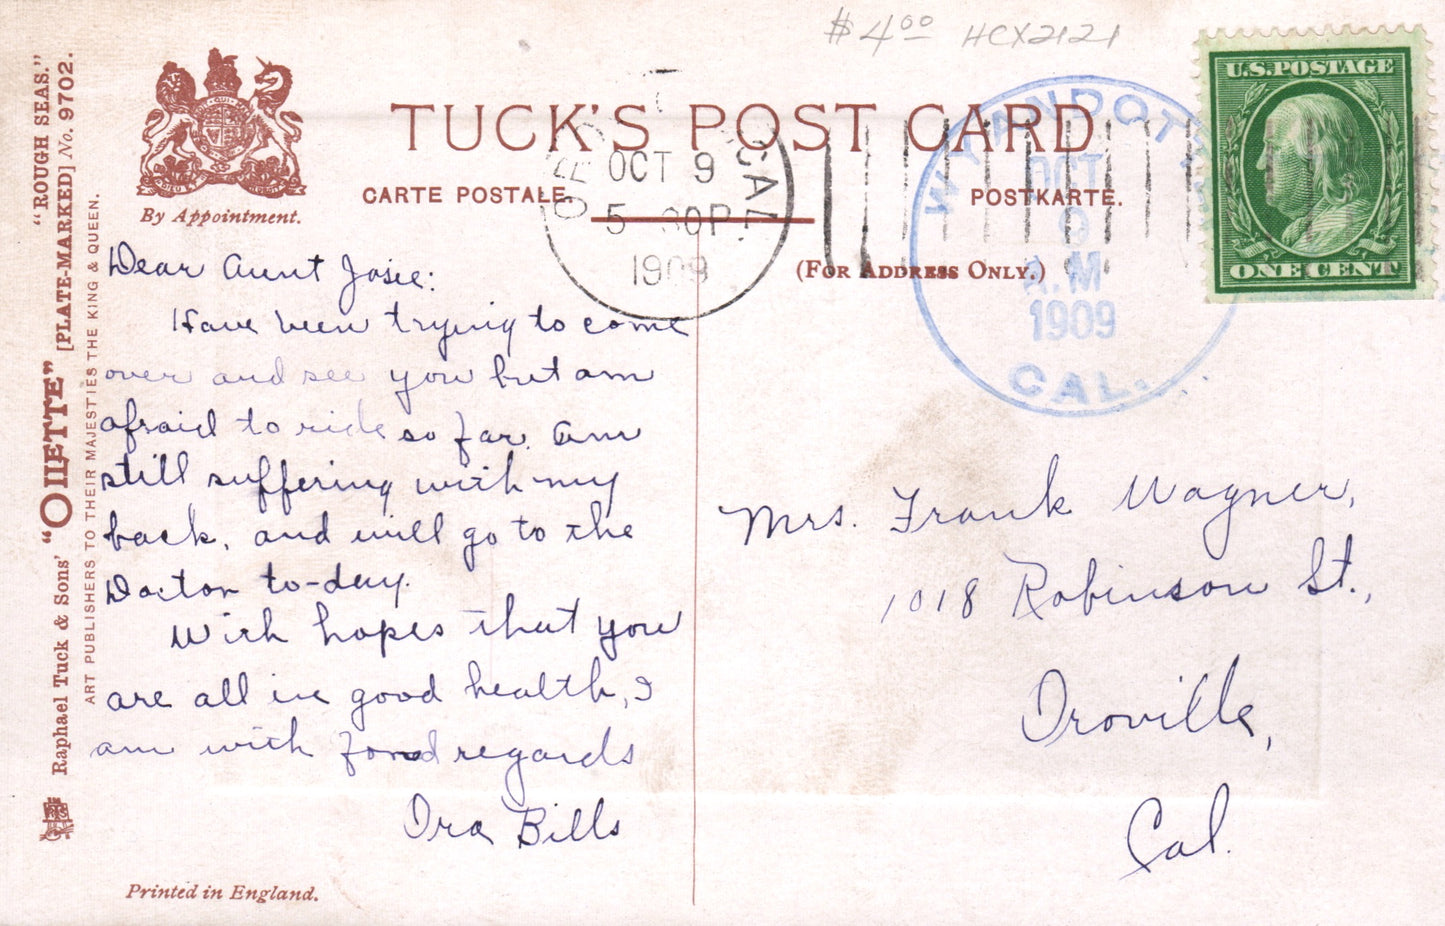 $4.00 HCX2121
U.S. POSTAGE
ONE CENT
TUCK'S POST CARD
CARTE POSTALE.
POSTKARTE.
(For Address Only.)
By Appointment.
CAL.
OCT 9
5 30P
1909
WYANDOTTE
OCT
9
A.M
1909
CAL.
"ROUGH SEAS."
[PLATE-MARKED] No. 9702.
Raphael Tuck & Sons' "OILETTE"
ART PUBLISHERS TO THEIR MAJESTIES THE KING & QUEEN.
Dear Aunt Josie:
Have been trying to come
over and see you but am
afraid to ride so far. Am
still suffering with my
back, and will go to the
Doctor to-day.
With hopes that you
are all in good health, I
am with fond regards
Ora Bills
Mrs. Frank Wagner,
1018 Robinson St.,
Oroville,
Cal.
Printed in England.